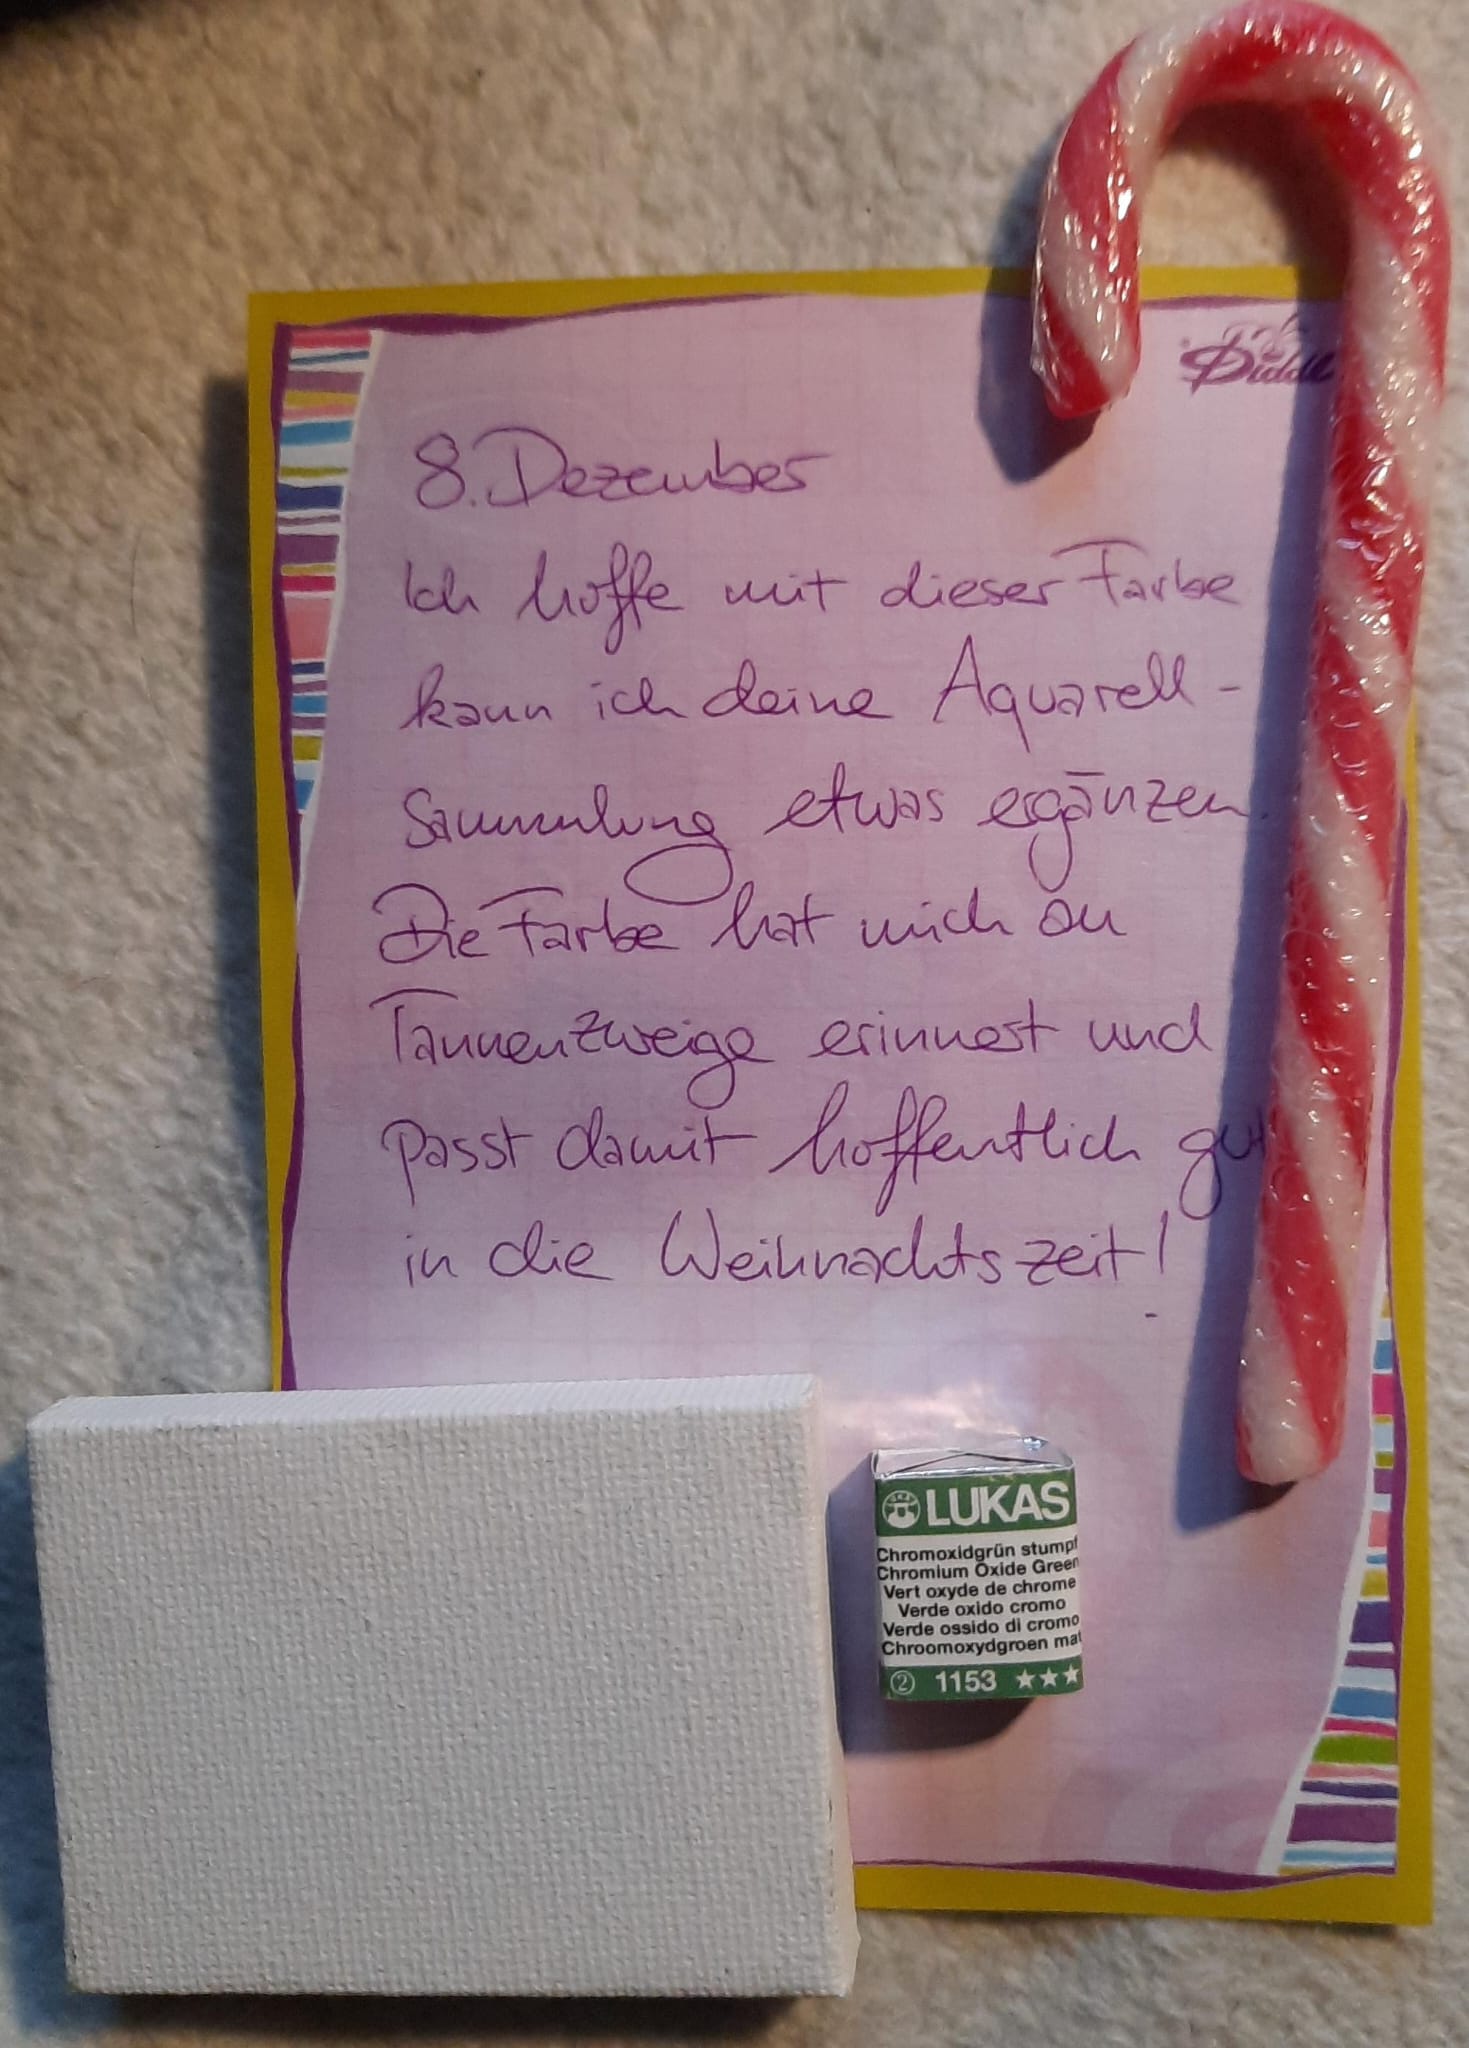 Diddl
8. Dezember
Ich hoffe mit dieser Farbe
kann ich deine Aquarell-
sammlung etwas ergänzen.
Die Farbe hat mich an
Tannenzweige erinnert und
passt damit hoffentlich gut
in die Weihnachtszeit!
LUKAS
Chromoxidgrün stumpf
Chromium Oxide Green
Vert oxyde de chrome
Verde oxido cromo
Verde ossido di cromo
Chroomoxydgroen mat
② 1153 ★★★